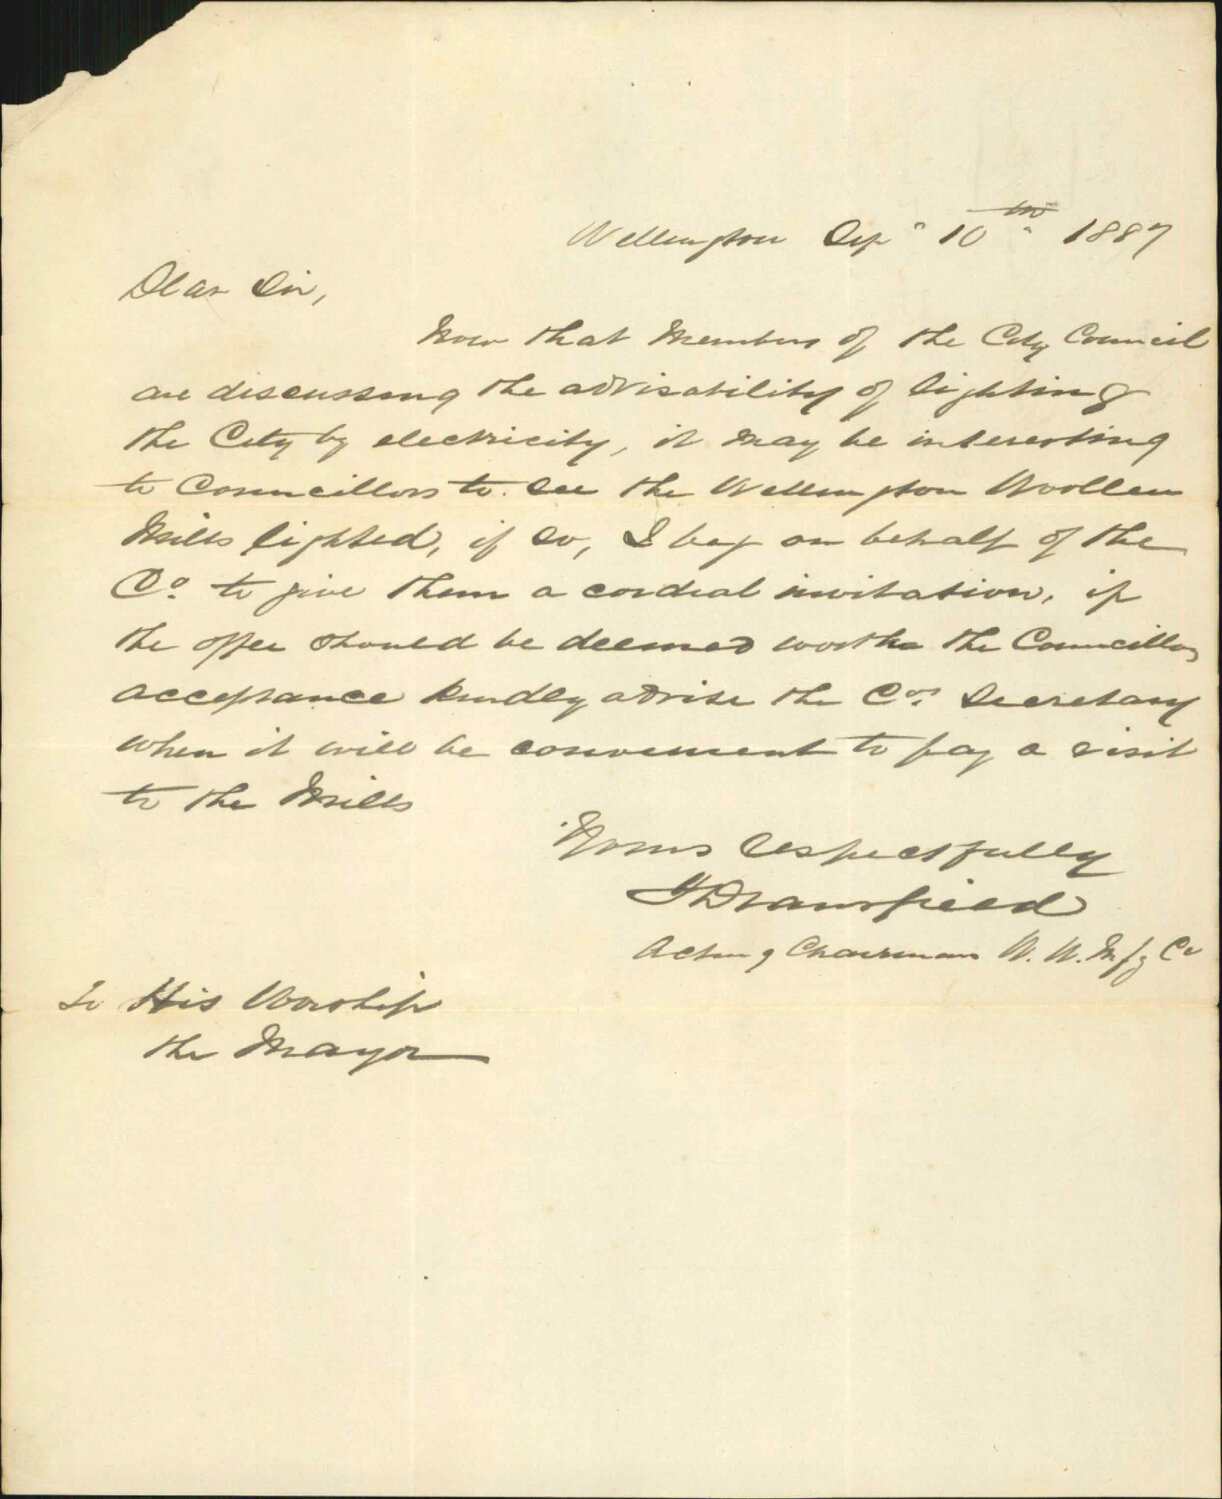 Wellington Sep 10th 1887
Dear Sir,
Now that Members of the City Council
are discussing the advisability of lighting
the City by electricity, it may be interesting
to Councillors to see the Wellington Woollen
Mills lighted, if so, I beg on behalf of the
Co. to give them a cordial invitation, if
the offer should be deemed worth the Councillors
acceptance kindly advise the Cos. Secretary
when it will be convenient to pay a visit
to the Mills
Yours respectfully
J Dransfield
Acting Chairman W. W. Mfg Co
To His Worship
the Mayor